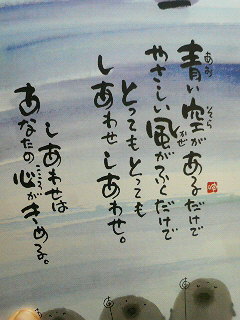 青い空があるだけで
やさしい風がふくだけで
とってもとっても
しあわせ しあわせ。
しあわせは
あなたの心がきめる。